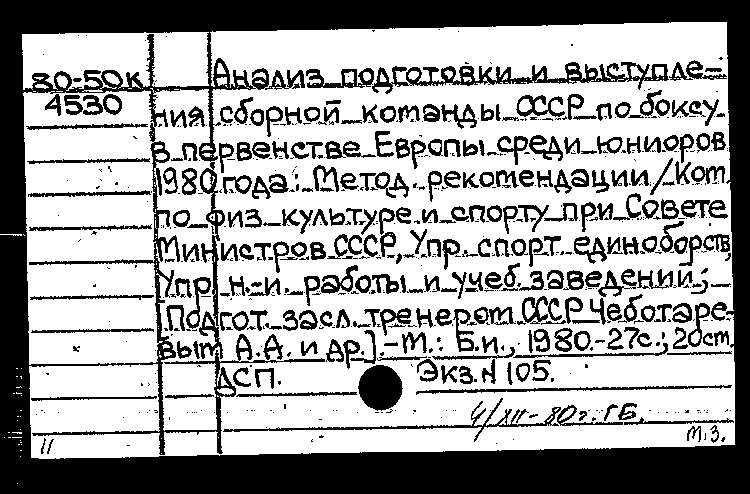 80-50к
4530
Анализ подготовки и выступле-
ния сборной команды СССР по боксу
в первенстве Европы среди юниоров
1980 года: Метод. рекомендации/Ком.
по физ. культуре и спорту при Совете
Министров СССР, Упр. спорт. единоборств,
Упр. н.-и. работы и учеб. заведений;
[Подгот. засл. тренером СССР Чеботаре-
вым А.А. и др.].-М.: Б.и., 1980.-27с.; 20см.
ДСП. Экз. N 105.
4/XII-80г. ГБ.
11
М.З.